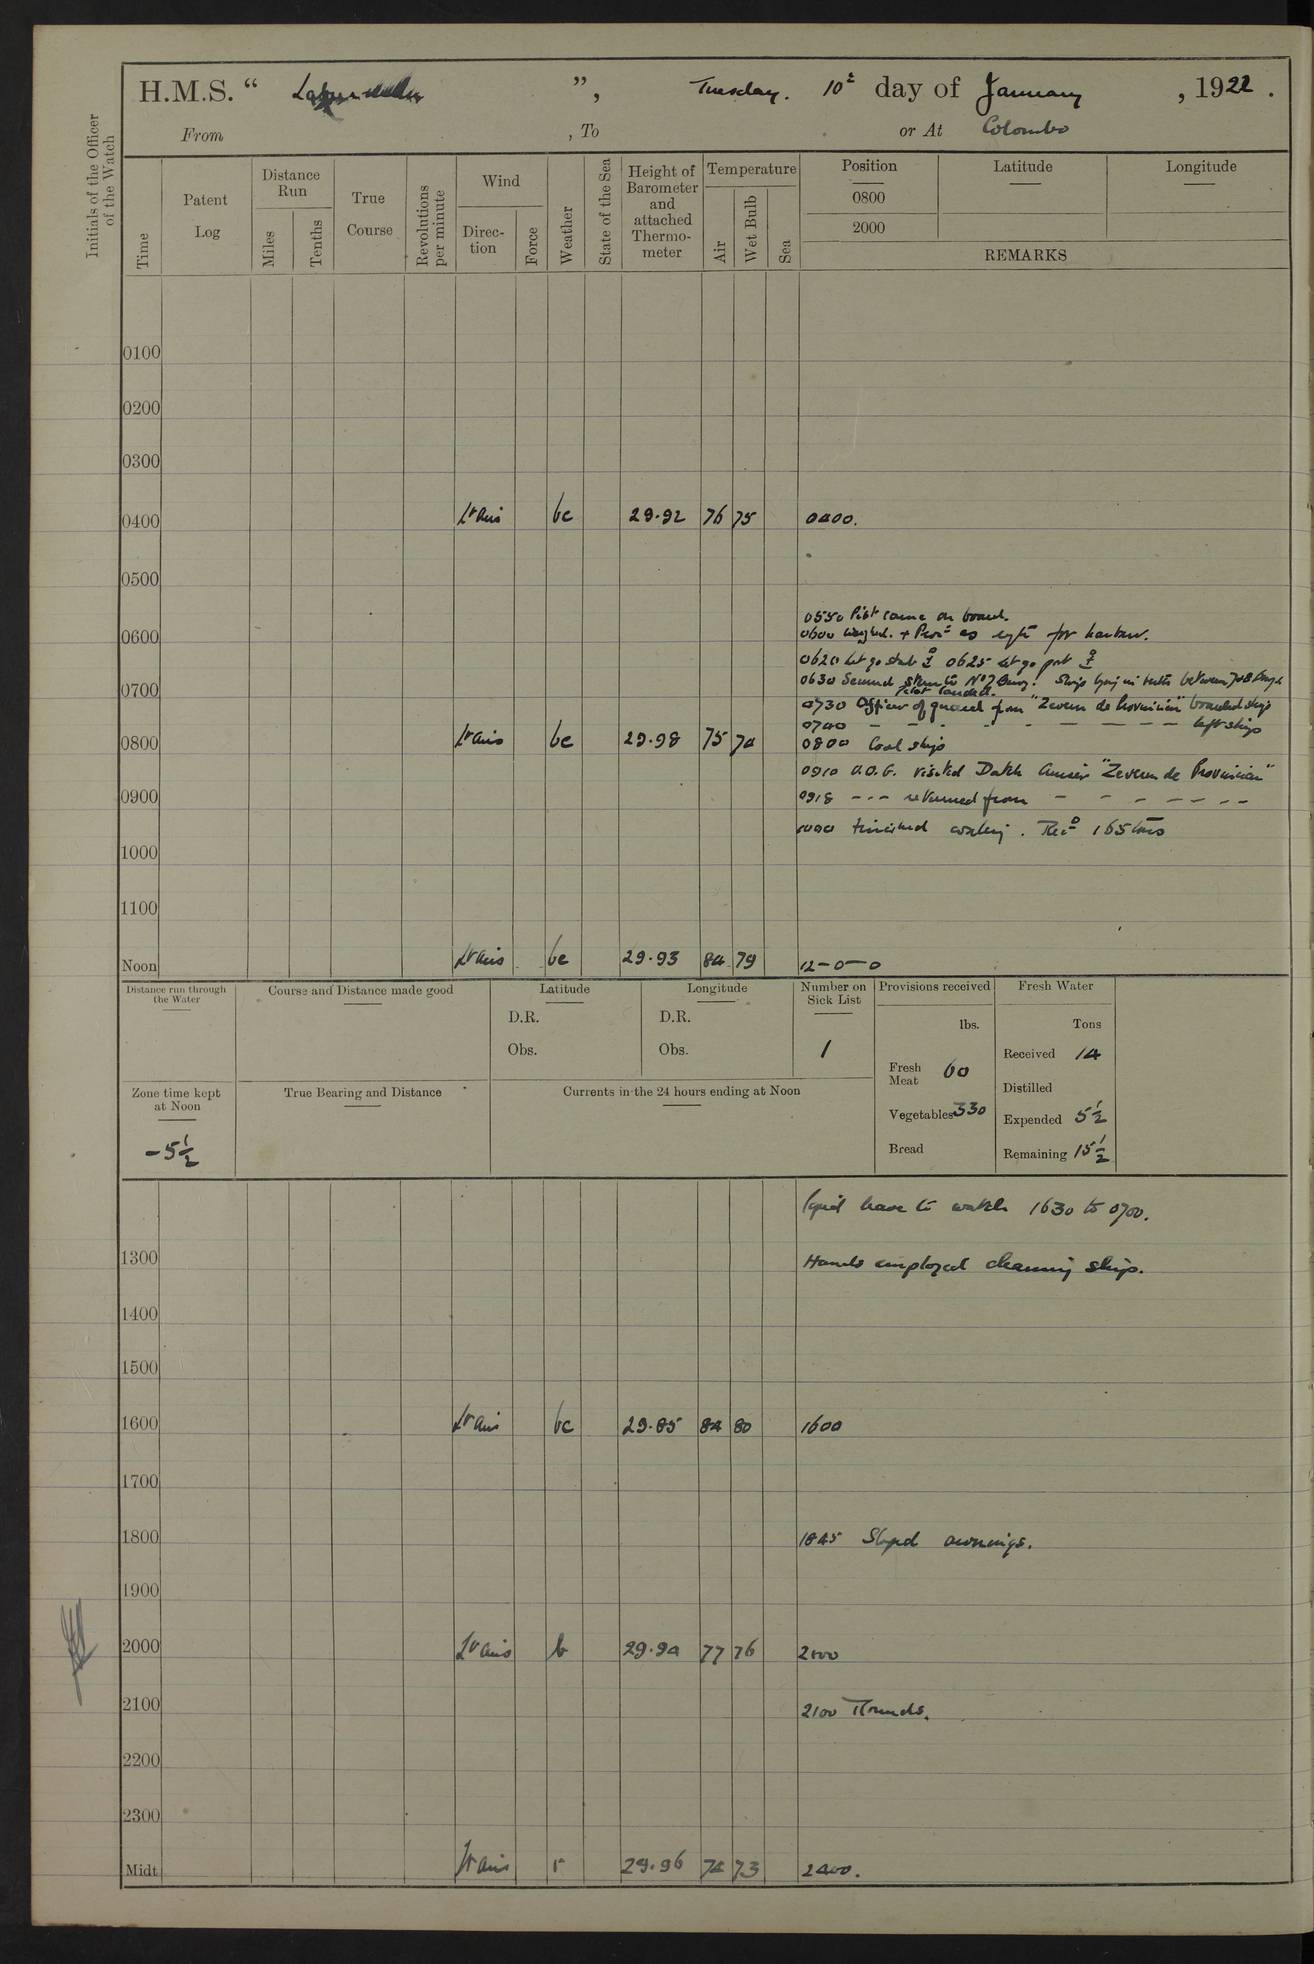 H.M.S. “ ”, Tuesday. 10th day of January , 1922 .
From , To or At Colombo
Initials of the Officer of the Watch
Time
Patent Log
Distance Run
Miles
Tenths
True Course
Revolutions per minute
Wind
Direction
Force
Weather
State of the Sea
Height of Barometer and attached Thermometer
Temperature
Air
Wet Bulb
Sea
Position Latitude Longitude
0800
2000
REMARKS
0100
0200
0300
0400 Lt airs bc 29.92 76 75 0400.
0500
0550 Pilot came on board.
0600 Weighed. + Proc'd as req'd for harbour.
0600
0620 Let go starb 0625 Let go port
0630 Secured stern to No 7 Buoy. Ship lying in berth between 7 & 8 buoys
Pilot landed.
0700
0730 Officer of guard from "Zeven de Provincien" boarded ship
0740 – – – – – – – – left ship
0800 Lt airs bc 29.98 75 74 0800 Coal ship
0910 O.O.G. visited Dutch Cruiser "Zeven de Provincien"
0900
0918 - - - returned from – – – – – –
finished coaling. Rec'd 165 tons
1000
1100
Noon Lt airs bc 29.93 84 79 12-0-0
Distance run through the Water
Course and Distance made good
Latitude
D.R.
Obs.
Longitude
D.R.
Obs.
Number on Sick List
1
Provisions received
lbs.
Fresh Meat 60
Vegetables 330
Bread
Fresh Water
Tons
Received 14
Distilled
Expended 5½
Remaining 15½
Zone time kept at Noon
-5½
True Bearing and Distance
Currents in the 24 hours ending at Noon
leave to watch 1630 to 0700.
1300 Hands employed cleaning ship.
1400
1500
1600 Lt airs bc 29.85 84 80 1600
1700
1800 1845 Sloped awnings.
1900
2000 Lt airs b 29.94 77 76 2000
2100 2100 Rounds.
2200
2300
Midt Lt airs r 29.96 74 73 2400.